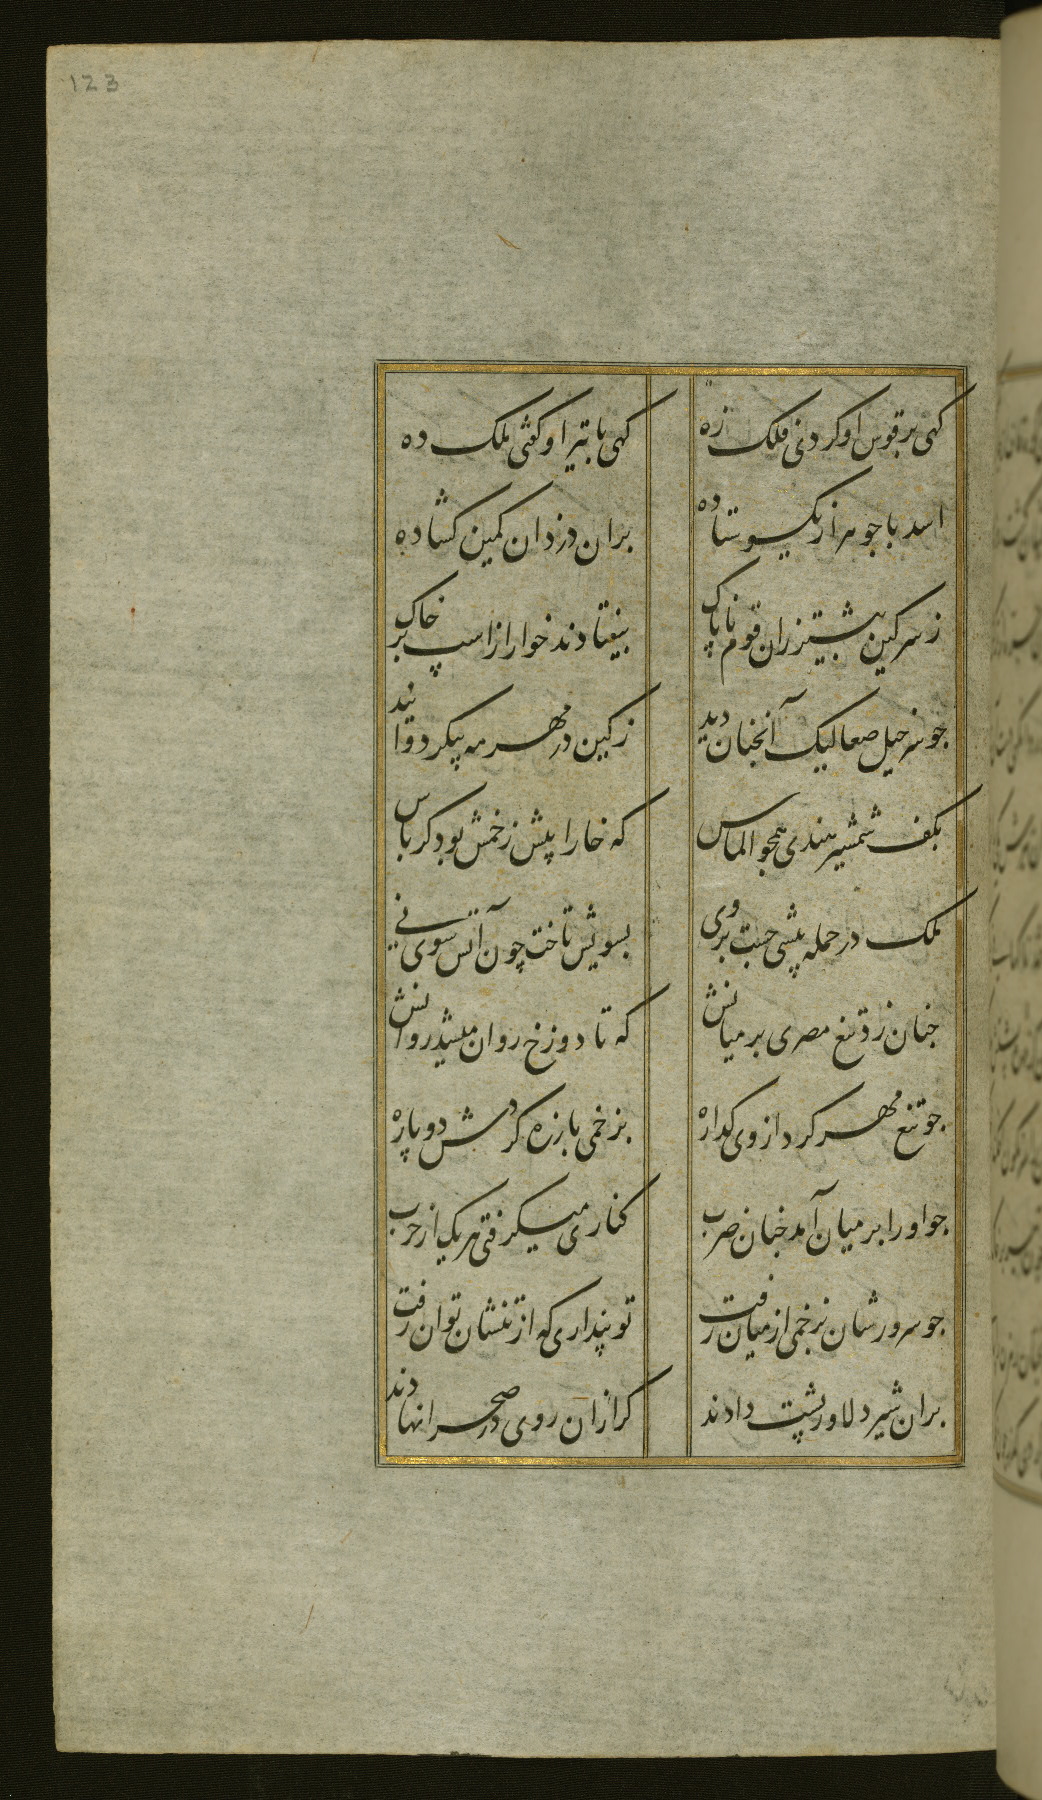 123
کهی بر قوس او کردی فلک زه
کهی با تیر او کفتی ملک ده
اسد با جوهر از یکسو ستاده
بران دزدان کمین کشاده
ز سر کین بیشتر زان قوم ناپاک
بیفتادند خوار از اسپ بر خاک
جو سر خیل صعالیک آنجنان دید
ز کین در مهر مه پیکر دوانید
بکف شمشیر هندی همجو الماس
که خارا پیش زخمش بود کرباس
ملک در حمله پیشی جست بر وی
بسویش تاخت چون آتش سوی نی
جنان زد تیغ مصری بر میانش
که تا دوزخ روان میشد روانش
جو تیغ مهر کرد از وی کداره
بزخمی با زره کردش دو پاره
جو او را بر میان آمد جنان ضرب
کناری میکرفتی هر یک از حرب
جو سرورشان بزخمی از میان رفت
تو پنداری که از تنشان توان رفت
بران شیر دلاور پشت دادند
کرازان روی در صحرا نهادند